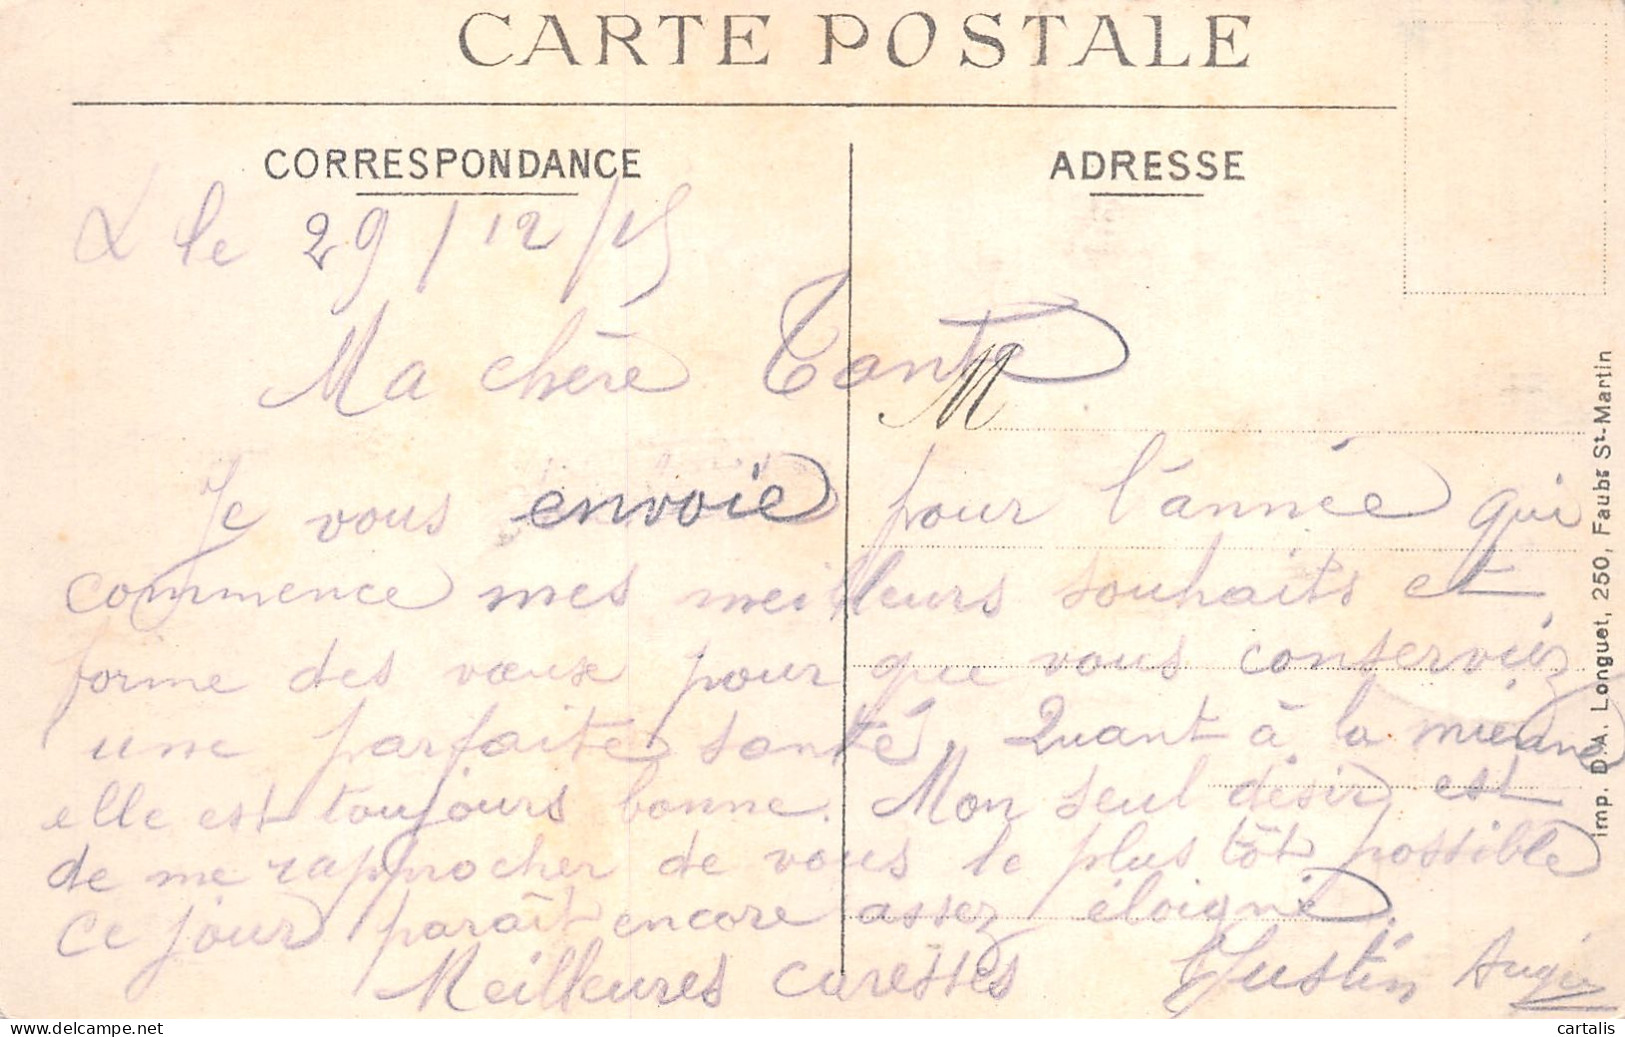 CARTE POSTALE
CORRESPONDANCE
ADRESSE
le 29/12/15
Ma chère Tante
M
Je vous envoie pour l'année qui
commence mes meilleurs souhaits et
forme des vœux pour que vous conserviez
une parfaite santé. Quant à la mienne
elle est toujours bonne. Mon seul désir est
de me rapprocher de vous le plus tôt possible
ce jour paraît encore assez éloigné.
Meilleures caresses Justin
Imp. D.A. Longuet, 250, Faubg St-Martin
cartalis